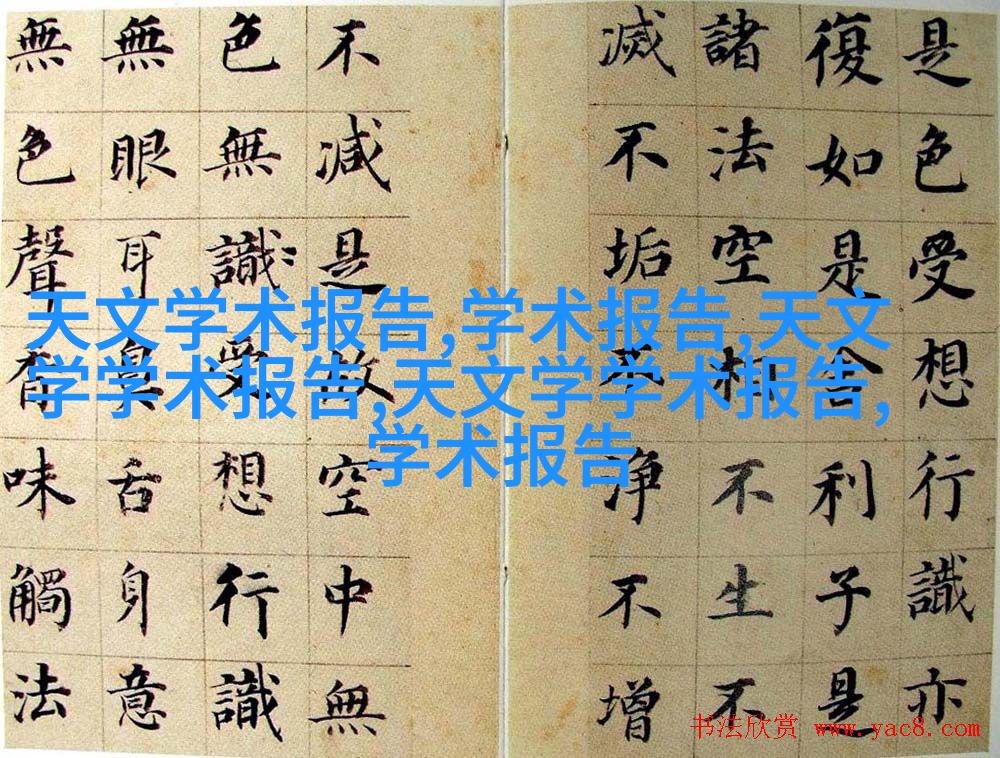 是色受想行識亦
復如是舍利子是
諸法空相不生不
滅不垢不净不增
不減是故空中無
色無識受想行識
無眼耳鼻舌身意
無色聲香味觸法
天文学术报告,学术报告,天文
学学术报告,天文学学术报告,
学术报告
书法欣赏 www.yac8.com